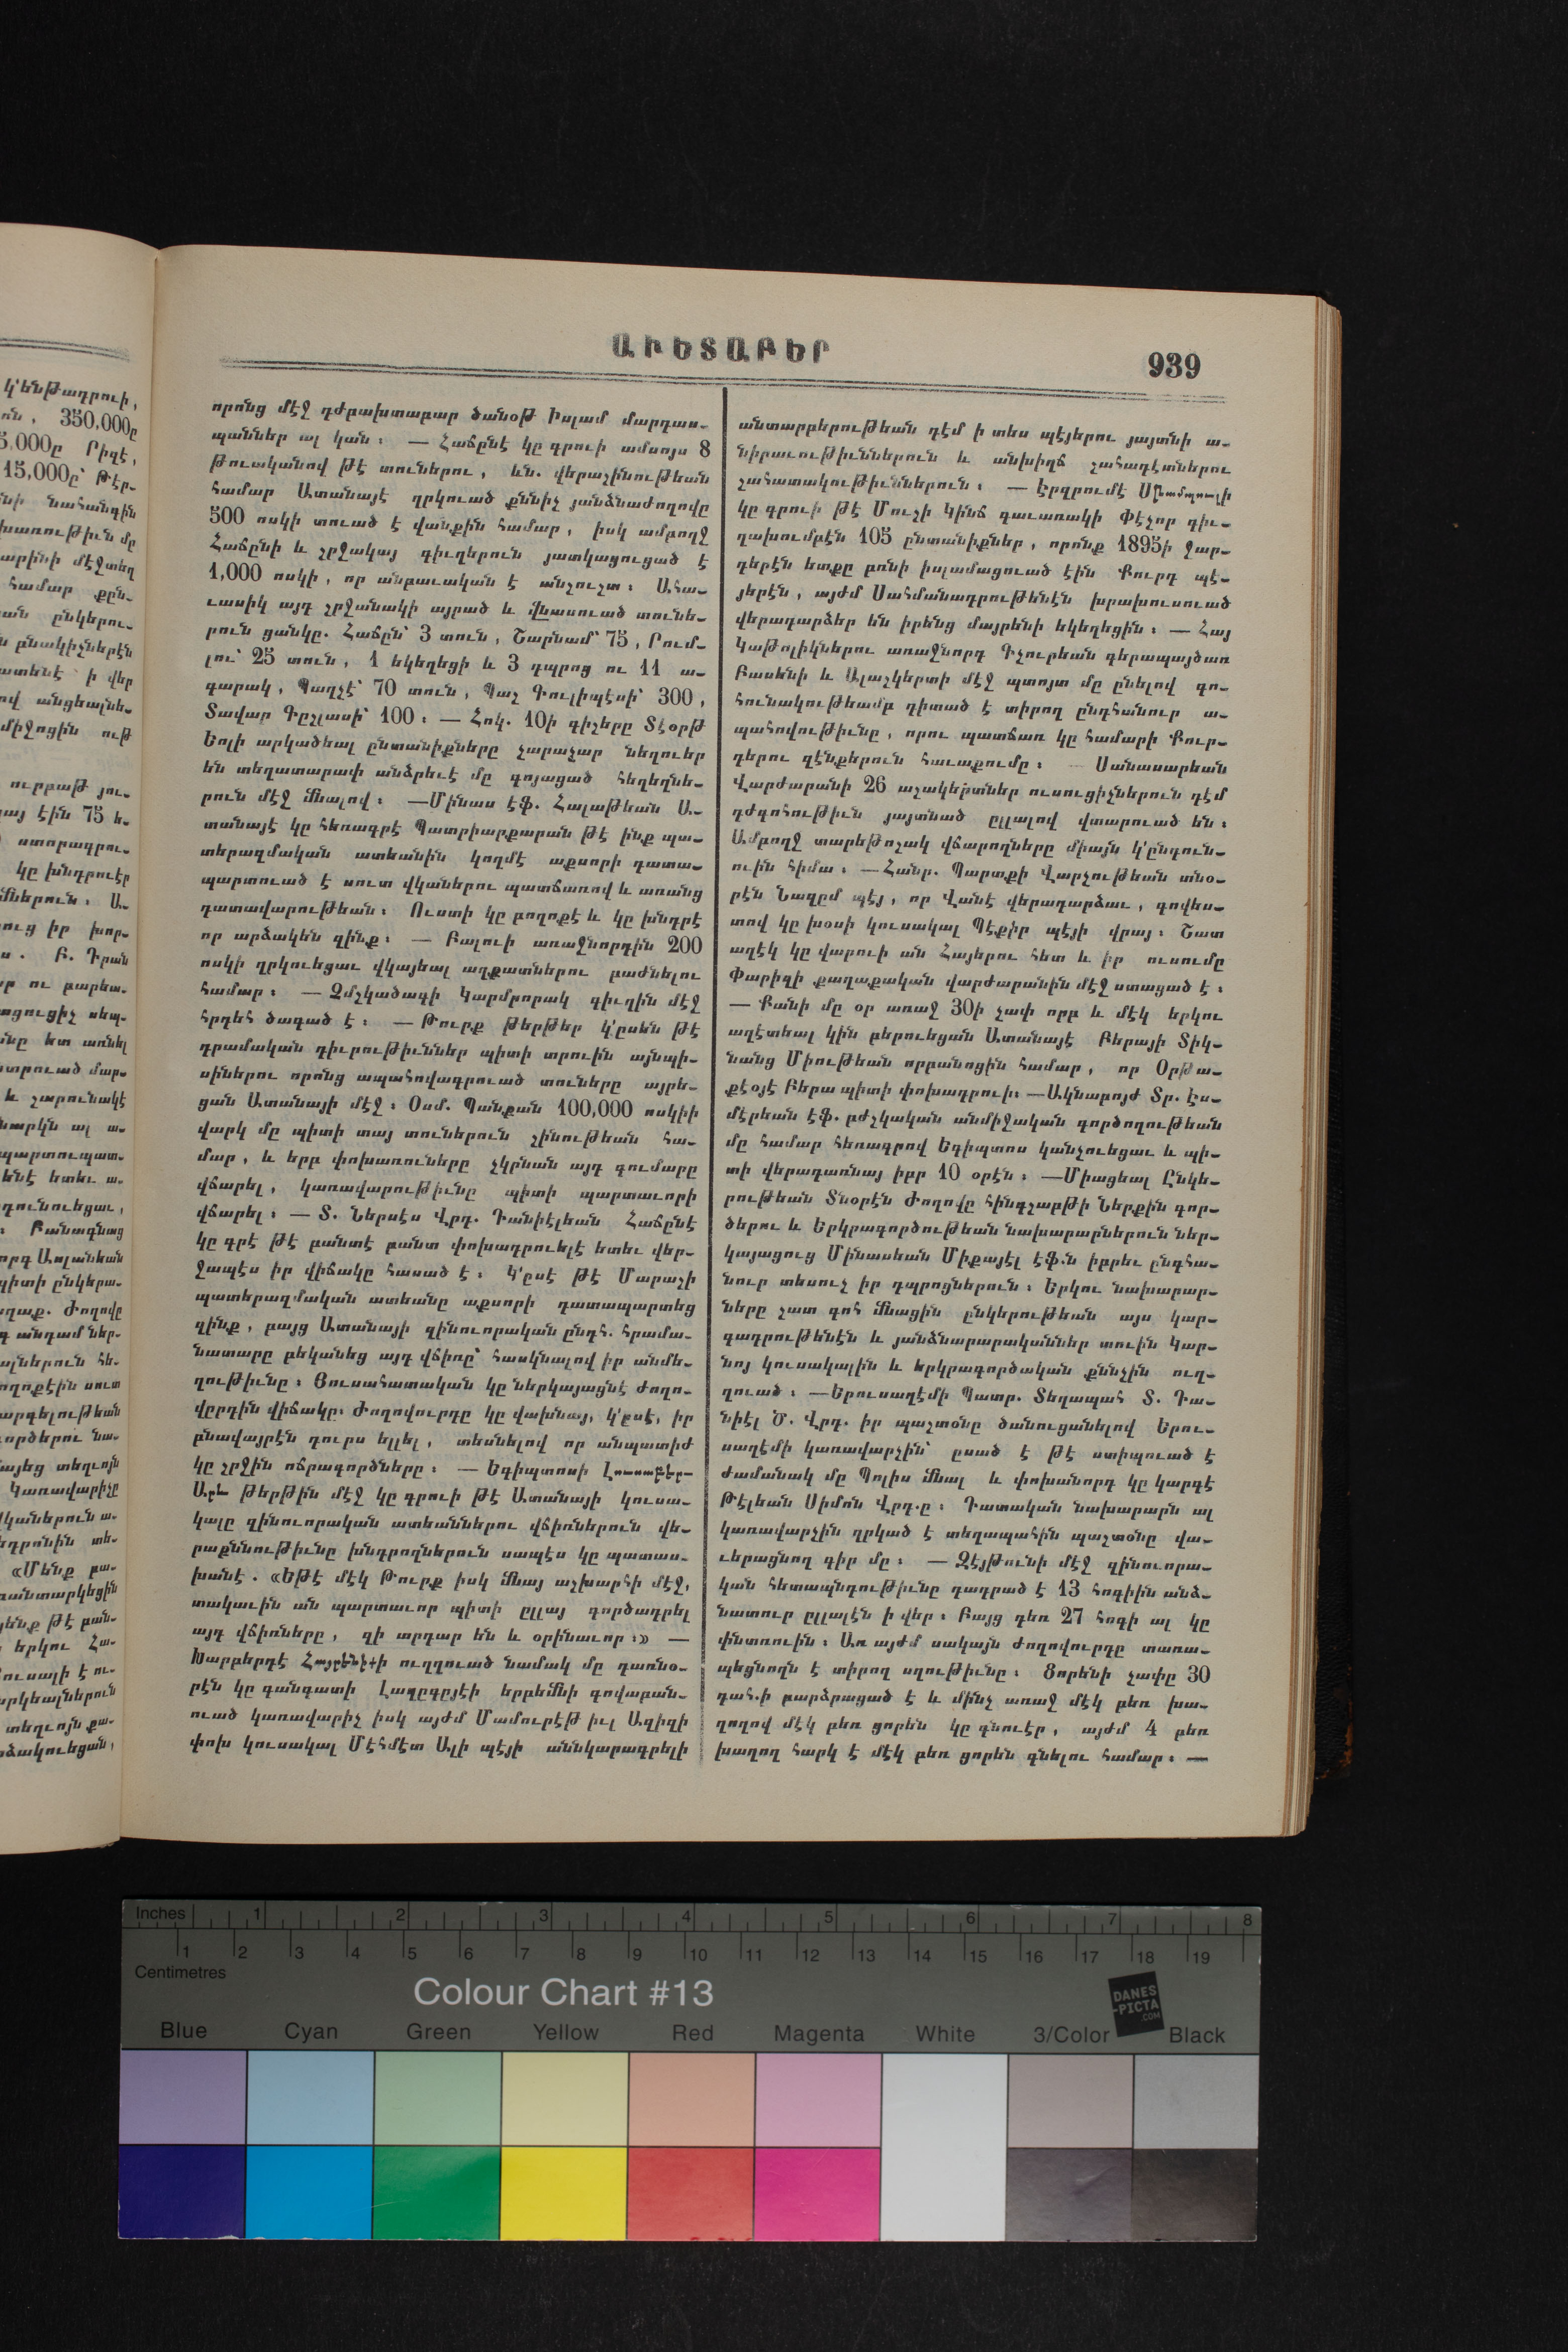 ԱՒԵՏԱԲԵՐ
939
որոնց մէջ դժբախտաբար ծանօթ Իսլամ մարդաս-
պաններ ալ կան։ — Հաճընէ կը գրուի ամսոյս 8
թուականով թէ տուներու, ևն. վերաշինութեան
համար Ատանայէ ղրկուած քննիչ յանձնաժողովը
500 ոսկի տուած է վանքին համար, իսկ ամբողջ
Հաճընի և շրջակայ գիւղերուն յատկացուցած է
1,000 ոսկի, որ անբաւական է անշուշտ։ Ահա-
ւասիկ այդ շրջանակի այրած և վնասուած տունե-
րուն ցանկը. Հաճըն՝ 3 տուն, Շարնամ՝ 75, Րում-
լու՝ 25 տուն, 1 եկեղեցի և 3 դպրոց ու 11 ա-
գարակ, Պաղչէ՝ 70 տուն, Պաշ Գուլիպէսի՝ 300,
Տավար Գըշլասի՝ 100։ — Հոկ. 10ի գիշերը Տէօրթ
Եօլի արկածեալ ընտանիքները չարաչար նեղուեր
են տեղատարափ անձրեւէ մը գոյացած հեղեղնե-
րուն մէջ մնալով։ —Մինաս էֆ. Հալաթեան Ա-
տանայէ կը հեռագրէ Պատրիարքարան թէ ինք պա-
տերազմական ատեանին կողմէ աքսորի դատա-
պարտուած է սուտ վկաներու պատճառով և առանց
դատավարութեան։ Ուստի կը բողոքէ և կը խնդրէ
որ արձակեն զինք։ — Բալուի առաջնորդին 200
ոսկի ղրկուեցաւ վկայեալ աղքատներու բաժնելու
համար։ — Չմշկածագի Կարմրորակ գիւղին մէջ
հրդեհ ծագած է։ — Թուրք թերթեր կ՚ըսեն թէ
դրամական դիւրութիւններ պիտի տրուին այնպի-
սիներու որոնց ապահովագրուած տուները այրե-
ցան Ատանայի մէջ։ Օսմ. Պանքան 100,000 ոսկիի
վարկ մը պիտի տայ տուներուն շինութեան հա-
մար, և երբ փոխառուները չկրնան այդ գումարը
վճարել, կառավարութիւնը պիտի պարտաւորի
վճարել։ — Տ. Ներսէս Վրդ. Դանիէլեան Հաճընէ
կը գրէ թէ բանտէ բանտ փոխադրուելէ ետեւ վեր-
ջապէս իր վիճակը հասած է։ Կ՚ըսէ թէ Մարաշի
պատերազմական ատեանը աքսորի դատապարտեց
զինք, բայց Ատանայի զինուորական ընդհ. հրամա-
նատարը բեկանեց այդ վճիռը՝ հասկնալով իր անմե-
ղութիւնը։ Յուսահատական կը ներկայացնէ ժողո-
վըրդին վիճակը. Ժողովուրդը կը վախնայ, կ՚ըսէ, իր
բնավայրէն դուրս ելլել, տեսնելով որ անպատիժ
կը շրջին ոճրագործները։ — Եգիպտոսի Լուսաբեր-
Արև թերթին մէջ կը գրուի թէ Ատանայի կուսա-
կալը զինուորական ատեաններու վճիռներուն վե-
րաքննութիւնը խնդրողներուն սապէս կը պատաս-
խանէ. «Եթէ մէկ Թուրք իսկ մնայ աշխարհի մէջ,
տակաւին ան պարտաւոր պիտի ըլլայ գործադրել
այդ վճիռները, զի արդար են և օրինաւոր։» —
Խարբերդէ Հայրենիքի ուղղուած նամակ մը դառնօ-
րէն կը գանգատի Լաղըգըյէի երբեմնի գովաբան-
ուած կառավարիչ իսկ այժմ Մամուրէթ իւլ Ազիզի
փոխ կուսակալ Մէհմէտ Ալի պէյի աննկարագրելի
անտարբերութեան դէմ ի տես պէյերու յայտնի ա-
նիրաւութիւններուն և անխիղճ շահադէտներու
շահատակութիւններուն։ — Էրզրումէ Սթամպուլի
կը գրուի թէ Մուշի Կինճ գաւառակի Փէչոր գիւ-
ղախումբէն 105 ընտանիքներ, որոնք 1895ի ջար-
դերէն ետքը բռնի իսլամացուած էին Քուրդ պէ-
յերէն, այժմ Սահմանադրութենէն խրախուսուած
վերադարձեր են իրենց մայրենի եկեղեցին։ — Հայ
Կաթոլիկներու առաջնորդ Գչուրեան գերապայծառ
Բասենի և Ալաշկերտի մէջ պտոյտ մը ընելով գո-
հունակութեամբ դիտած է տիրող ընդհանուր ա-
պահովութիւնը, որու պատճառ կը համարի Քուր-
դերու զէնքերուն հաւաքումը։ — Սանասարեան
Վարժարանի 26 աշակերտներ ուսուցիչներուն դէմ
դժգոհութիւն յայտնած ըլլալով վտարուած են։
Ամբողջ տարեթոշակ վճարողները միայն կ՚ընդուն-
ուին հիմա։ — Հանր. Պարտքի Վարչութեան տնօ-
րէն Նազըմ պէյ, որ Վանէ վերադարձաւ, գովես-
տով կը խօսի կուսակալ Պէքիր պէյի վրայ։ Շատ
աղէկ կը վարուի ան Հայերու հետ և իր ուսումը
Փարիզի քաղաքական վարժարանին մէջ ստացած է։
— Քանի մը օր առաջ 30ի չափ որբ և մէկ երկու
աղէտեալ կին բերուեցան Ատանայէ Բերայի Տիկ-
նանց Միութեան որբանոցին համար, որ Օրթա-
քէօյէ Բերա պիտի փոխադրուի։ —Ակնաբոյժ Տր. Էս-
մէրեան էֆ. բժշկական անմիջական գործողութեան
մը համար հեռագրով Եգիպտոս կանչուեցաւ և պի-
տի վերադառնայ իբր 10 օրէն։ —Միացեալ Ընկե-
րութեան Տնօրէն Ժողովը հինգշաբթի Ներքին գոր-
ծերու և Երկրագործութեան նախարարներուն ներ-
կայացուց Մինասեան Միքայէլ էֆ.ն իբրեւ ընդհա-
նուր տեսուչ իր դպրոցներուն։ Երկու նախարար-
ները շատ գոհ մնացին ընկերութեան այս կար-
գադրութենէն և յանձնարարականներ տուին Կար-
նոյ կուսակալին և երկրագործական քննչին ուղ-
ղուած։ —Երուսաղէմի Պատր. Տեղապահ Տ. Դա-
նիէլ Ծ. Վրդ. իր պաշտօնը ծանուցանելով Երու-
սաղէմի կառավարչին՝ ըսած է թէ ստիպուած է
ժամանակ մը Պոլիս մնալ և փոխանորդ կը կարգէ
Թէլեան Սիմոն Վրդ.ը։ Դատական նախարարն ալ
կառավարչին ղրկած է տեղապահին պաշտօնը վա-
ւերացնող գիր մը։ — Զէյթունի մէջ զինուորա-
կան հետապնդութիւնը դադրած է 13 հոգիին անձ-
նատուր ըլլալէն ի վեր։ Բայց դեռ 27 հոգի ալ կը
փնտռուին։ Առ այժմ սակայն ժողովուրդը տառա-
պեցնողն է տիրող սղութիւնը։ Ցորենի չափը 30
դահ.ի բարձրացած է և մինչ առաջ մէկ բեռ խա-
ղողով մէկ բեռ ցորեն կը գնուէր, այժմ 4 բեռ
խաղող հարկ է մէկ բեռ ցորեն գնելու համար։ —
Inches 1 2 3 4 5 6 7 8
1 2 3 4 5 6 7 8 9 10 11 12 13 14 15 16 17 18 19
Centimetres
Colour Chart #13
DANES
-PICTA
.COM
Blue Cyan Green Yellow Red Magenta White 3/Color Black